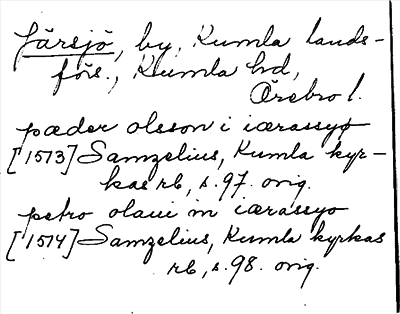 Järsjö, by, Kumla lands-
förs., Kumla hd,
Örebro l.
pæder olsson i iærassyø
[1573] Samzelius, Kumla kyr-
kas rb, s. 97. orig.
petro olaui in iærassyo
[1574] Samzelius, Kumla kyrkas
rb, s. 98. orig.